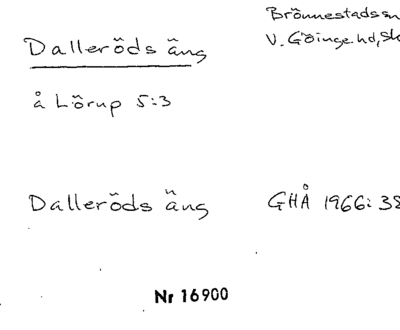 Dalleröds äng
Brönnestads sn
V. Göinge hd, Sk
å Lörup 5:3
Dalleröds äng
GHÅ 1966: 38
Nr 16900